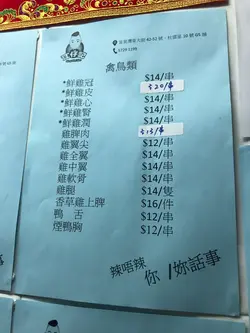 禽鳥類
*鮮雞冠 $14/串
*鮮雞皮 $20/串
*鮮雞心 $14/串
*鮮雞腎 $14/串
*鮮雞潤 $14/串
雞脾肉 $15/串
雞翼尖 $12/串
雞全翼 $14/串
雞中翼 $14/串
雞軟骨 $14/串
雞腿 $14/隻
香草雞上脾 $16/件
鴨舌 $12/串
煙鴨胸 $12/串
辣唔辣
你/妳話事